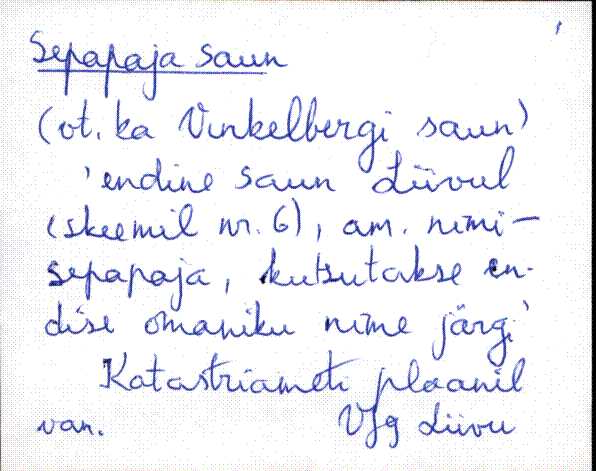 Sepapaja saun
(vt. ka Vinkelbergi saun)
'endine saun Liivul
(skeemil nr. 6), am. nimi-
sepapaja, kutsutakse en-
dise omaniku nime järgi'
Katastriameti plaanil
van. Vjg Liivu